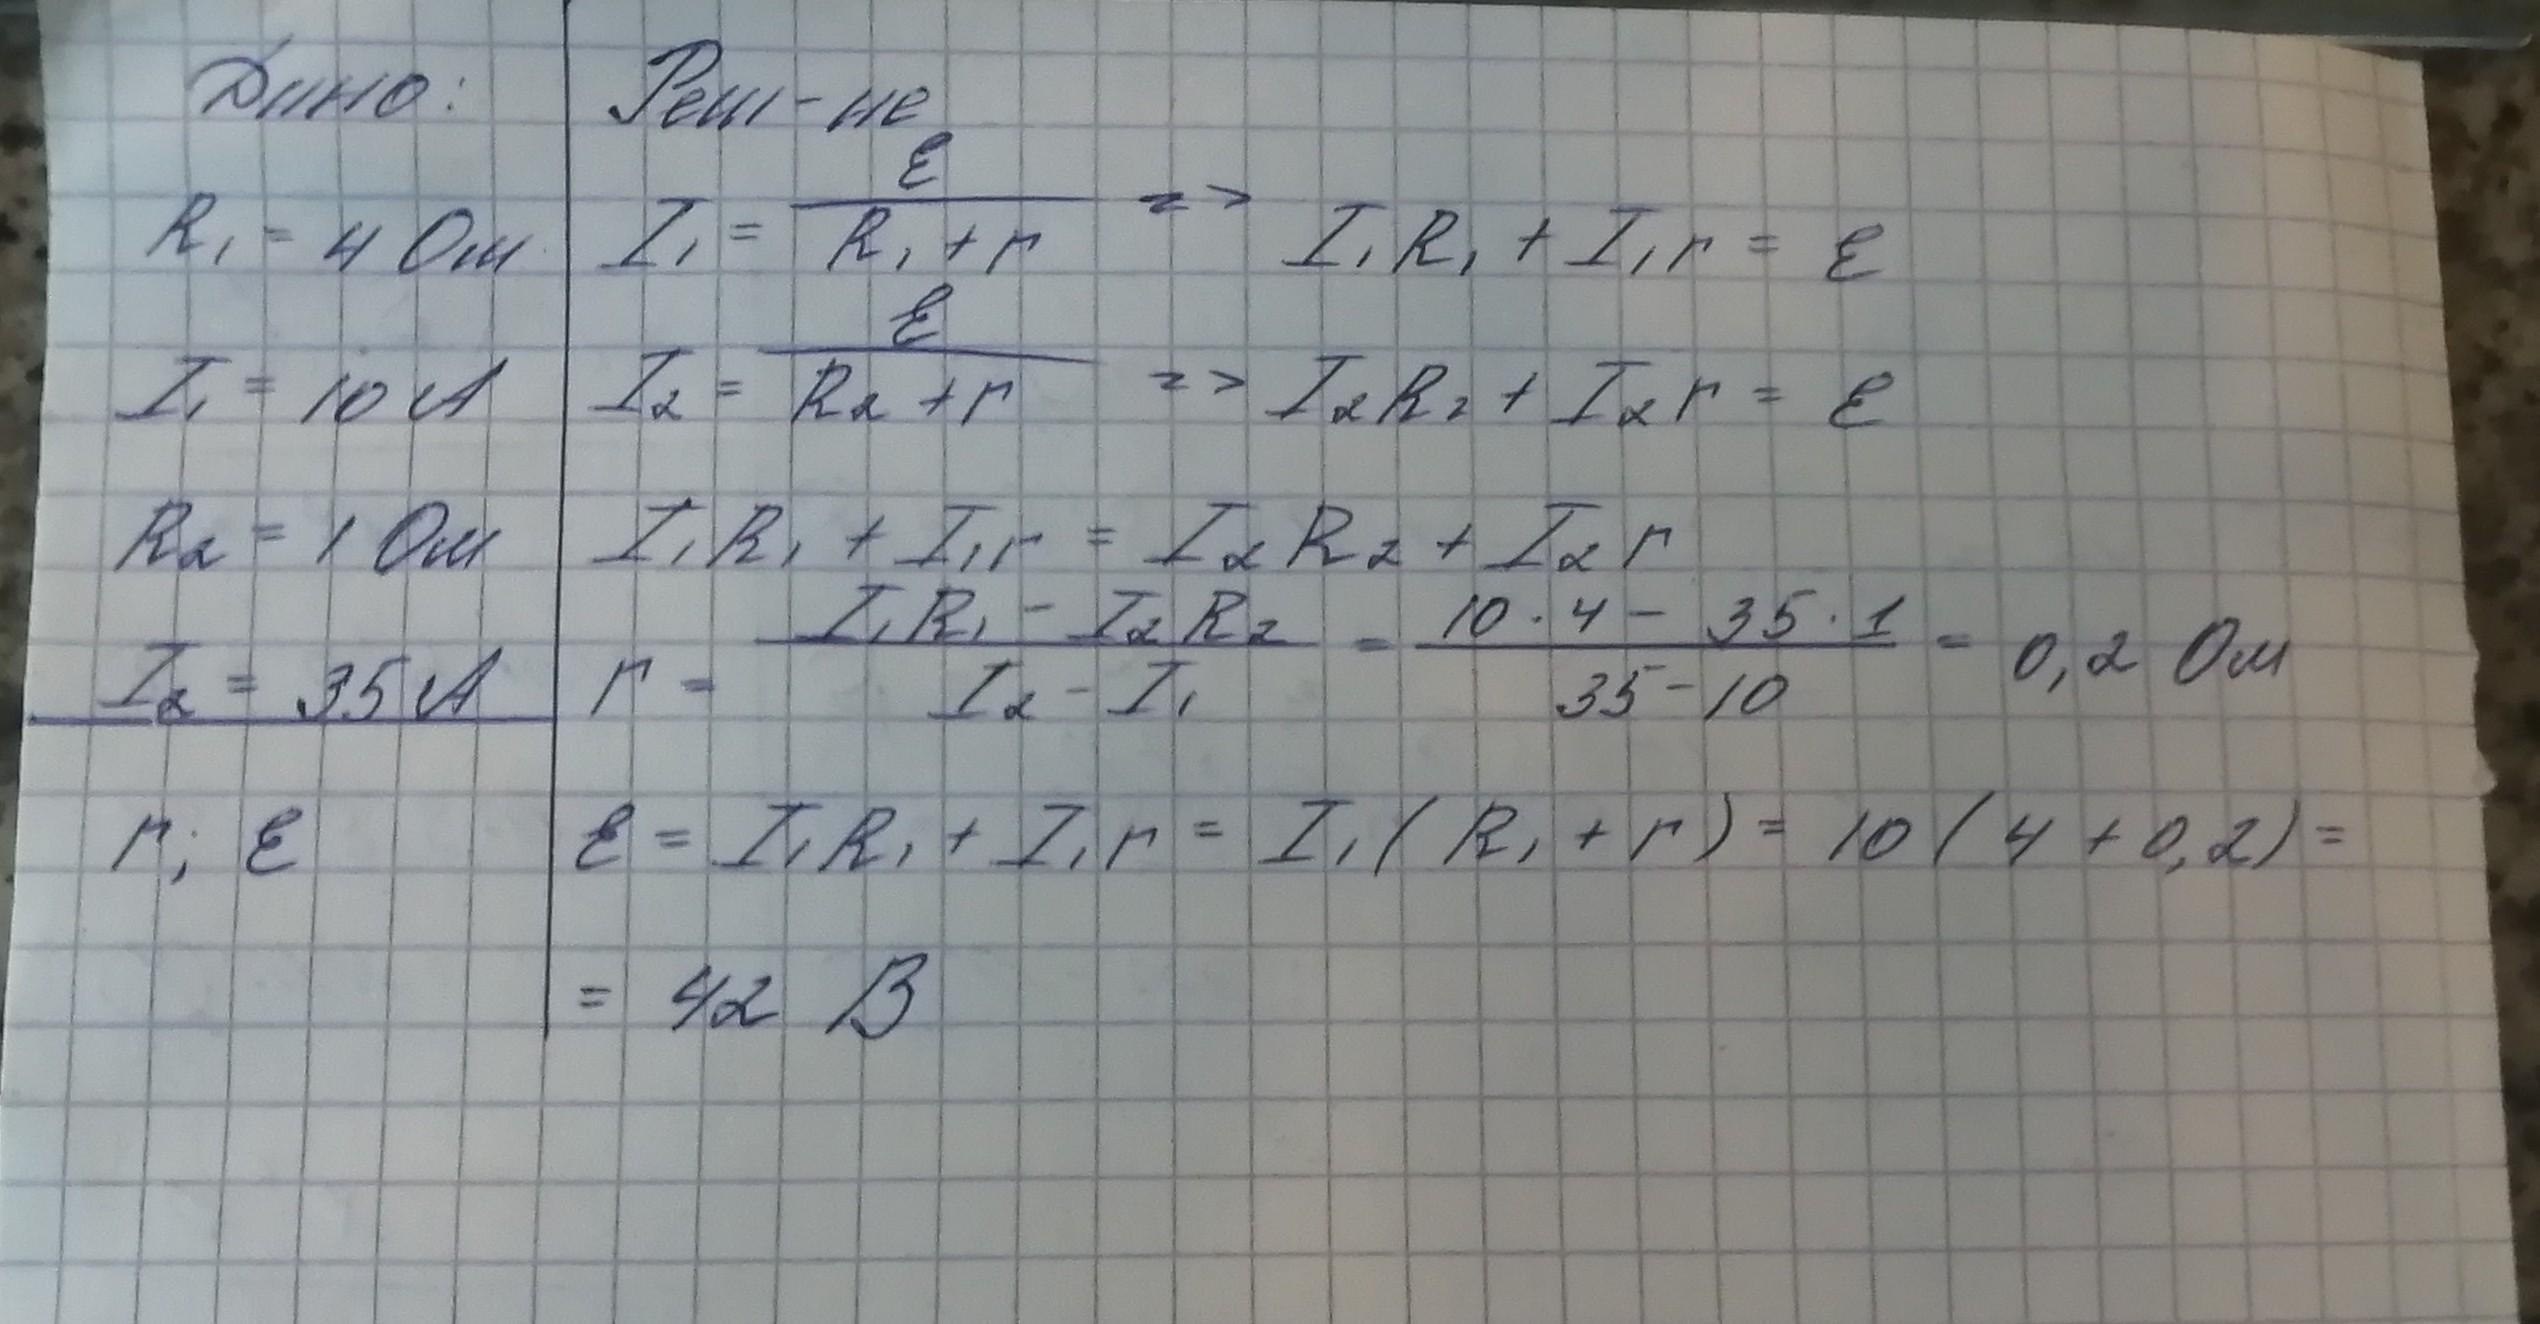 Дано:
R₁ = 4 Ом
I₁ = 10 А
R₂ = 1 Ом
I₂ = 35 А
r; ℰ
Реш-ие
I₁ = ℰ / (R₁ + r) => I₁R₁ + I₁r = ℰ
I₂ = ℰ / (R₂ + r) => I₂R₂ + I₂r = ℰ
I₁R₁ + I₁r = I₂R₂ + I₂r
r = (I₁R₁ - I₂R₂) / (I₂ - I₁) = (10 · 4 - 35 · 1) / (35 - 10) = 0,2 Ом
ℰ = I₁R₁ + I₁r = I₁(R₁ + r) = 10(4 + 0,2) =
= 42 В